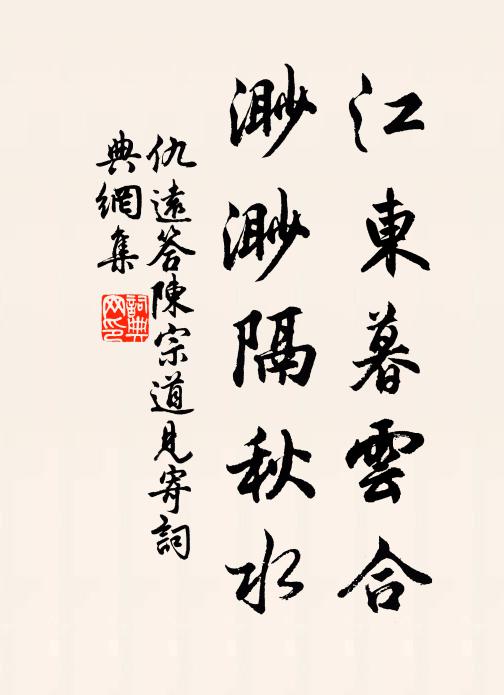 江東暮雲合
渺渺隔秋水
仇遠答陳宗道見寄詞
典網集
詞典
网印